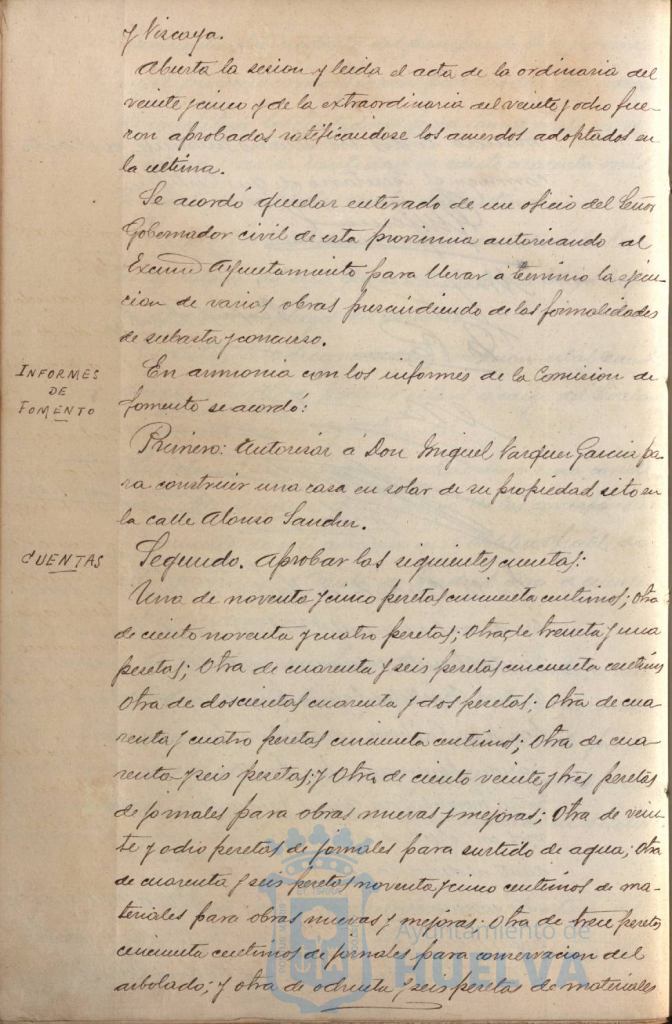 y Viscaya.
Abierta la sesion y leida el acta de la ordinaria del
veinte y cinco y de la extraordinaria del veinte y ocho fue-
ron aprobadas ratificandose los acuerdos adoptados en
la ultima.
Se acordó quedar enterado de un oficio del Señor
Gobernador civil de esta provincia autorizando al
Excmo Ayuntamiento para llevar á termino la ejecu-
cion de varias obras prescindiendo de las formalidades
de subasta y concurso.
INFORMES
DE
FOMENTO
En armonia con los informes de la Comision de
fomento se acordó:
Primero: Autorizar á Don Miguel Vazquez Garcia pa-
ra construir una casa en solar de su propiedad sito en
la calle Alonso Sanchez.
CUENTAS
Segundo. Aprobar las siguientes cuentas:
Una de noventa y cinco pesetas cincuenta centimos; Otra
de ciento noventa y cuatro pesetas; Otra de treinta y una
pesetas; Otra de cuarenta y seis pesetas cincuenta centimos
Otra de doscientas cuarenta y dos pesetas; Otra de cua
renta y cuatro pesetas cincuenta centimos; Otra de cua-
renta y seis pesetas; y Otra de ciento veinte y tres pesetas
de jornales para obras nuevas y mejoras; Otra de vein-
te y ocho pesetas de jornales para surtido de agua; Otra
de cuarenta y seis pesetas noventa y cinco centimos de ma-
teriales para obras nuevas y mejoras; Otra de trece pesetas
cincuenta centimos de jornales para conservacion del
arbolado; y otra de ochenta y seis pesetas de materiales
Ayuntamiento de
HUELVA